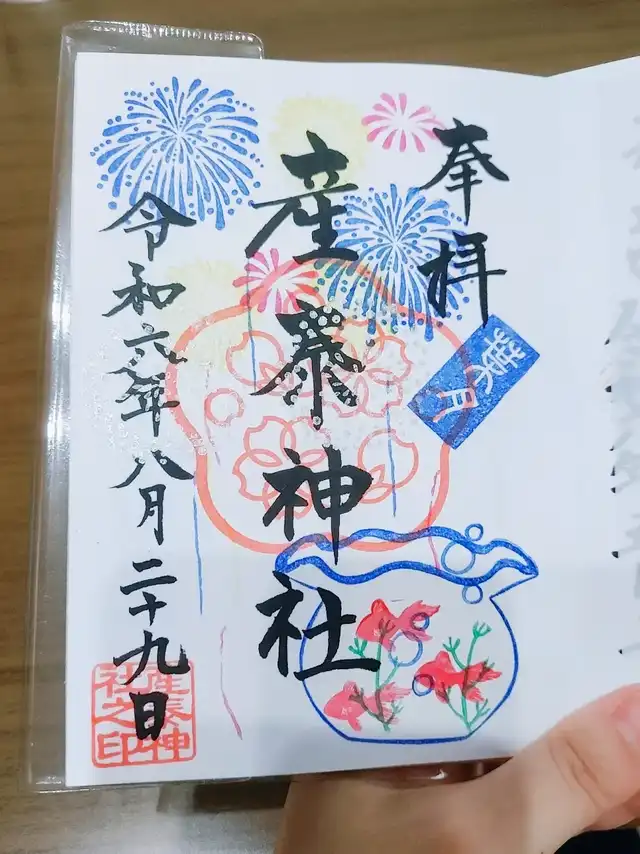 奉拝
葉月
産泰神社
令和六年八月二十九日
産泰神
社之印